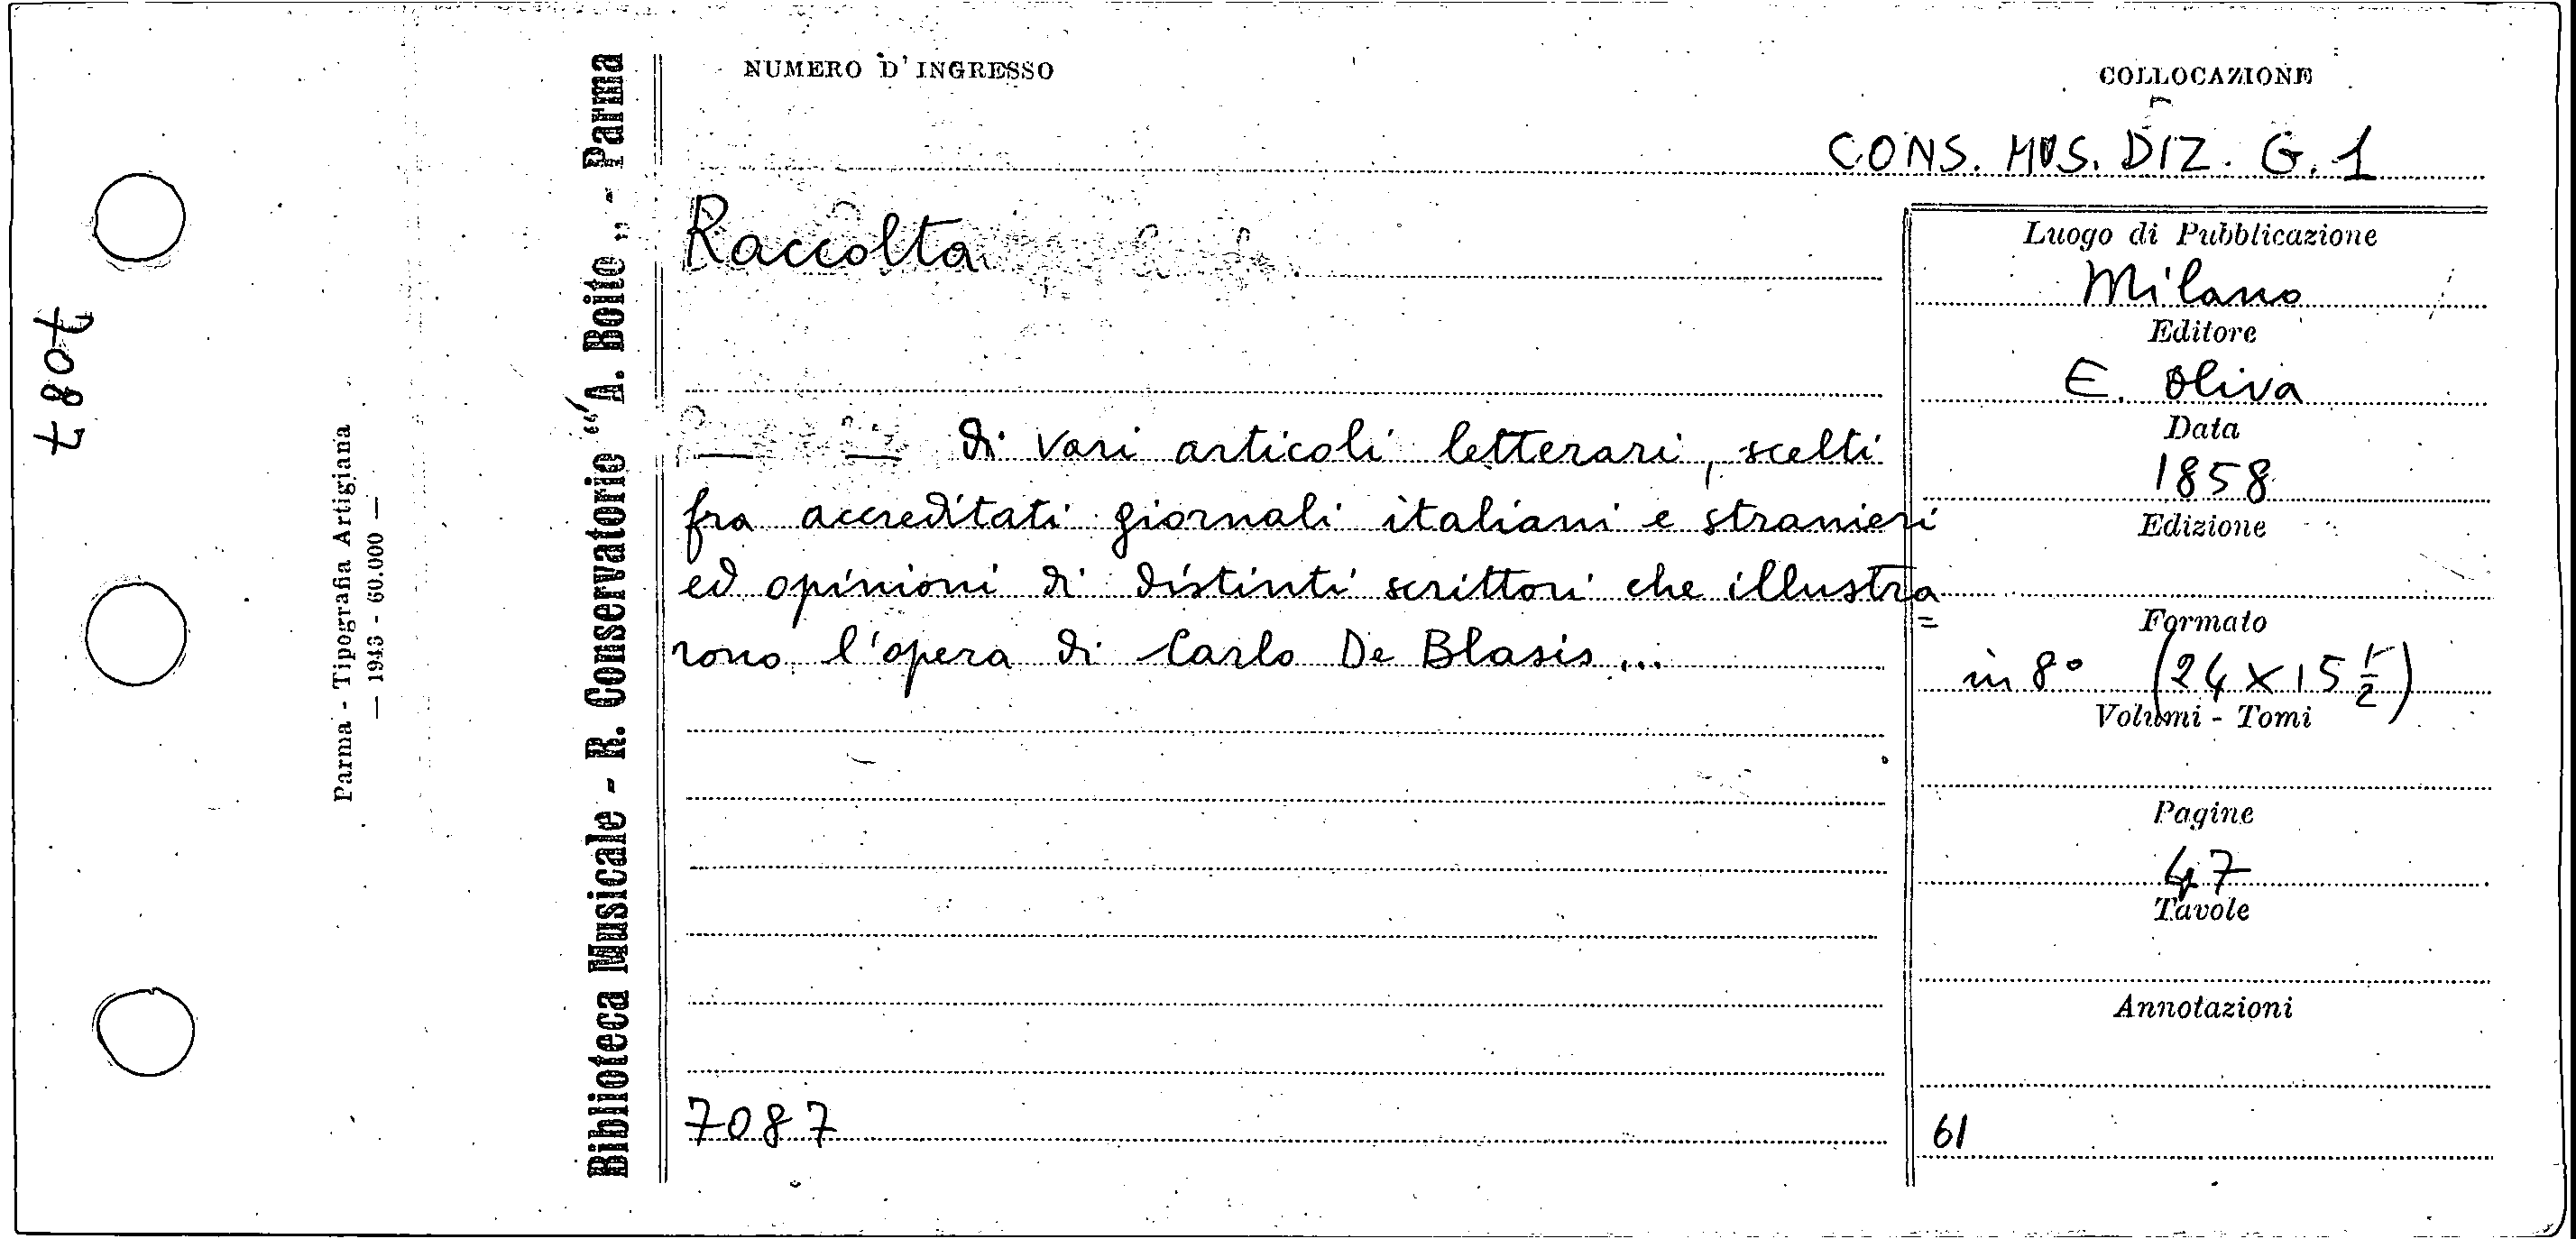 NUMERO D'INGRESSO
COLLOCAZIONE
CONS. MUS. DIZ. G. 1
Raccolta
— — di vari articoli letterari, scelti
fra accreditati giornali italiani e stranieri
ed opinioni di distinti scrittori che illustra=
rono l'opera di Carlo De Blasis...
7087
Luogo di Pubblicazione
Milano
Editore
E. Oliva
Data
1858
Edizione
Formato
in 8° (24 x 15 1/2)
Volumi - Tomi
Pagine
47
Tavole
Annotazioni
61
Biblioteca Musicale - R. Conservatorio "A. Boito„ - Parma
Parma - Tipografia Artigiana
— 1943 - 60.000 —
7087